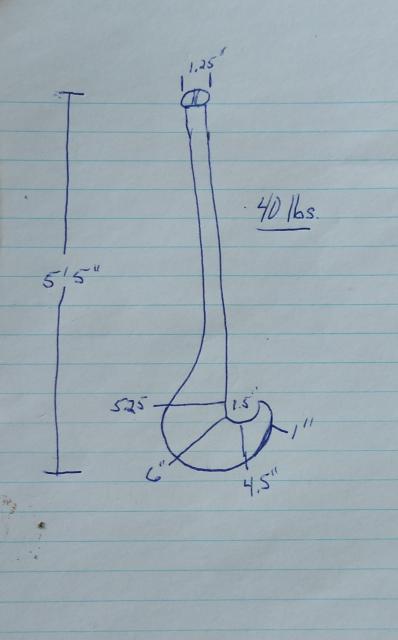 1.25"
40 lbs.
5' 5"
5.25
1.5"
1"
6"
4.5"